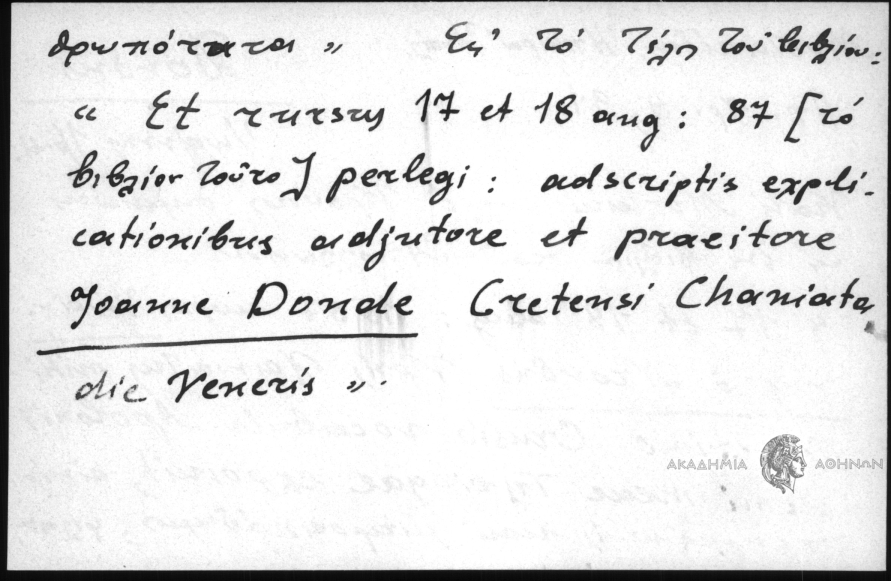 θρωπότατα „ Εἰς τό τέλος τοῦ βιβλίου:
“ Et rursus 17 et 18 aug: 87 [τό
βιβλίον τοῦτο] perlegi: adscriptis expli-
cationibus adjutore et praeitore
Joanne Donde Cretensi Chaniata,
die Veneris „.
ΑΚΑΔΗΜΙΑ ΑΘΗΝΩΝ